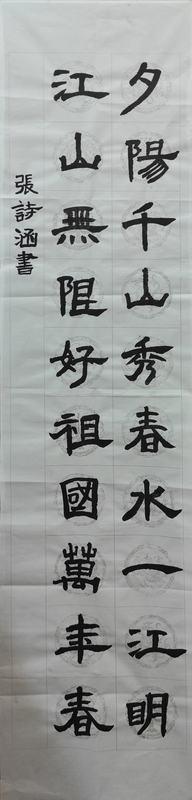 夕陽千山秀春水一江明
江山無阻好祖國萬年春
張詩涵書